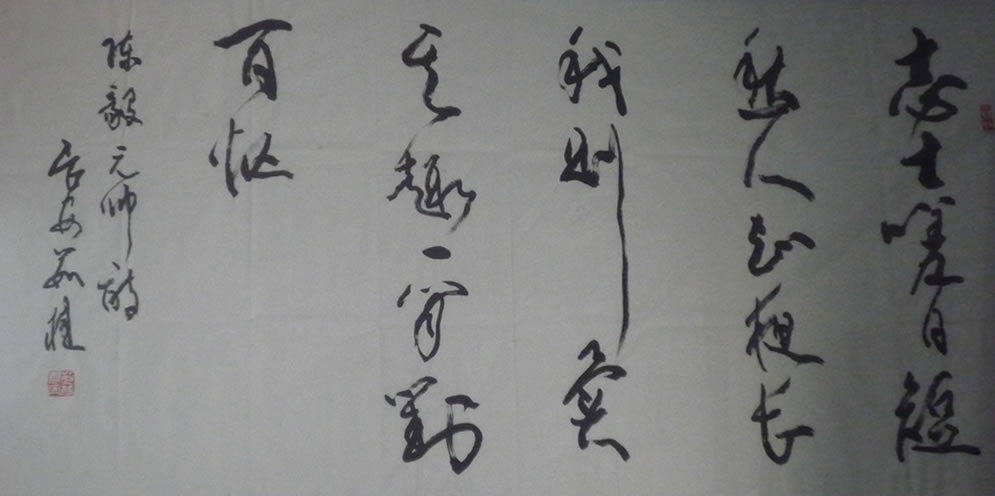 志士嗟日短
愁人知夜长
我则異
其趣一闲對
百忙
陈毅元帅诗
长安茹桂